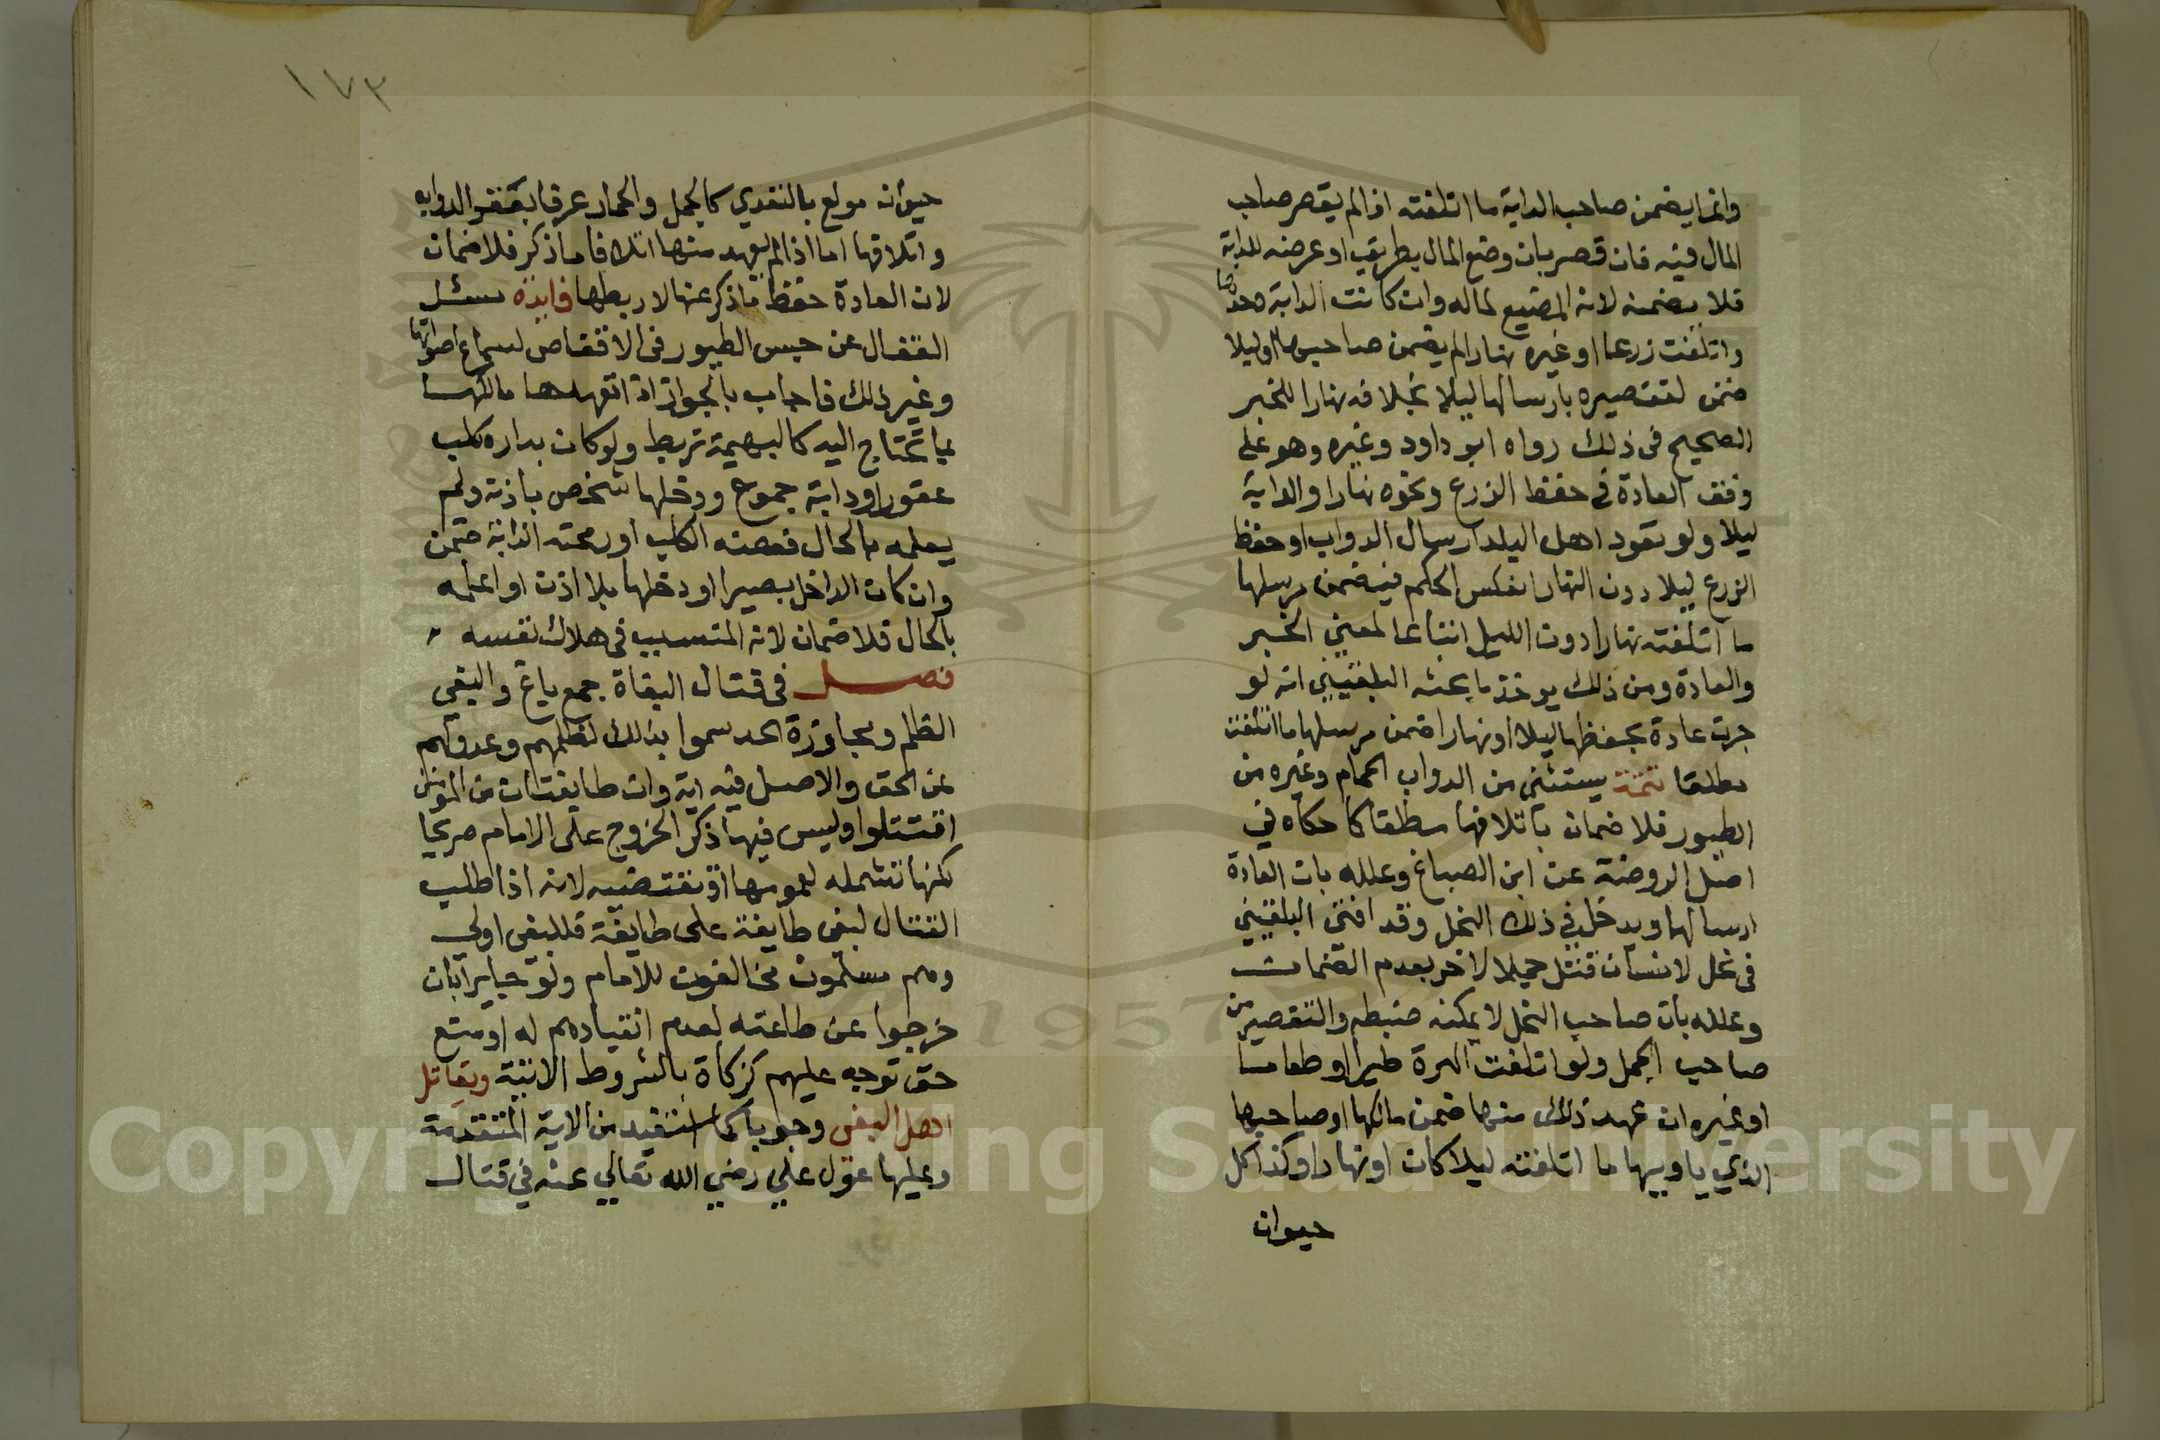 وانما يضمن صاحب الدابة ما اتلفته اذا لم يقصر صاحب
المال فيه فان قصر بان وضع المال بطريق او عرضه للدابة
فلا يضمنه لانه المضيع لماله وان كانت الدابة وحدها
واتلفت زرعا او غيره نهارا لم يضمن صاحبها او ليلا
ضمن لتقصيره بارسالها ليلا بخلافه نهارا للخبر
الصحيح في ذلك رواه ابو داود وغيره وهو على
وفق العادة في حفظ الزرع ونحوه نهارا والدابة
ليلا ولو تعود اهل البلد ارسال الدواب او حفظ
الزرع ليلا دون النهار انعكس الحكم فيضمن مرسلها
ما اتلفته نهارا دون الليل اتباعا لمعنى الخبر
والعادة ومن ذلك يوخذ ما بحثه البلقيني انه لو
جرت عادة بحفظها ليلا او نهارا ضمن مرسلها ما اتلفته
مطلقا تتمة يستثنى من الدواب الحمام وغيره من
الطيور فلا ضمان باتلافها مطلقا كما حكاه في
اصل الروضة عن ابن الصباغ وعلله بان العادة
ارسالها ويدخل في ذلك النحل وقد افتى البلقيني
في نحل لانسان قتل جملا لاخر بعدم الضمان
وعلله بان صاحب النحل لا يمكنه ضبطه والتقصير من
صاحب الجمل ولو اتلفت الهرة طيرا او طعاما
او غيره ان عهد ذلك منها ضمن مالكها او صاحبها
الذي ياويها ما اتلفته ليلا كان او نهارا وكذا كل
حيوان
١٧٣
حيوان مولع بالتعدي كالجمل والحمار عرفا بعقر الدواب
واتلافها اما اذا لم يعهد منها اتلاف ما ذكر فلا ضمان
لان العادة حفظ ما ذكر عنها لا ربطها فايدة سئل
القفال عن حبس الطيور في الاقفاص لسماع اصواتها
وغير ذلك فاجاب بالجواز اذا تعهدها مالكها
بما تحتاج اليه كالبهيمة تربط ولو كان بداره كلب
عقور او دابة جموح ودخلها شخص باذنه ولم
يعلمه بالحال فعضه الكلب او رمحته الدابة ضمن
وان كان الداخل بصيرا او دخلها بلا اذن او اعلمه
بالحال فلا ضمان لانه المتسبب في هلاك نفسه
فصل في قتال البغاة جمع باغ والبغي
الظلم ومجاوزة الحد سموا بذلك لظلمهم وعدولهم
عن الحق والاصل فيه اية وان طايفتان من المومنين
اقتتلوا وليس فيها ذكر الخروج على الامام صريحا
لكنها تشمله لعمومها او تقتضيه لانه اذا طلب
القتال لبغي طايفة على طايفة فللبغي اولى
وهم مسلمون مخالفون للامام ولو جايرا بان
خرجوا عن طاعته لعدم انقيادهم له او منع
حق توجه عليهم كزكاة بالشروط الاتية ويقاتل
اهل البغي وجوبا كما استفيد من الاية المتقدمة
وعليها عول علي رضي الله تعالي عنه في قتال
1957
Copyright © King Saud University